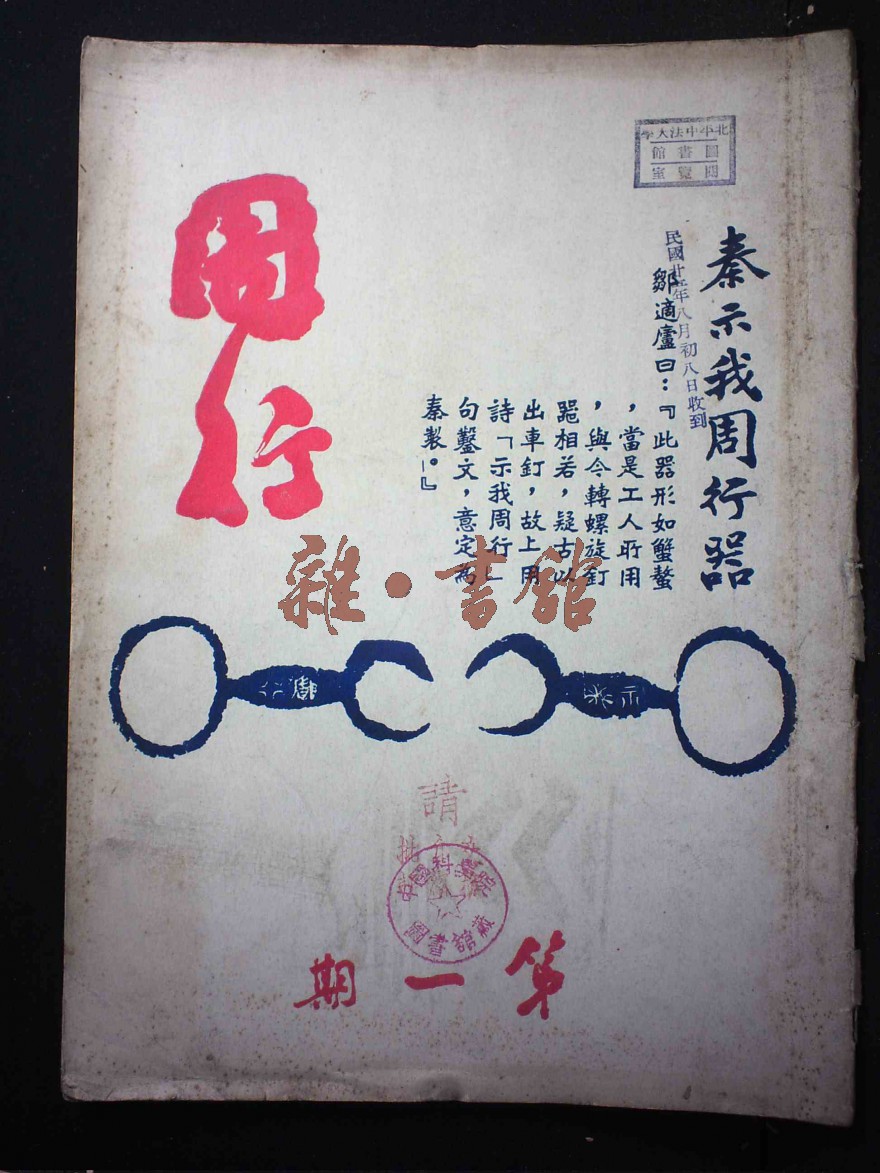 北平中法大學
圖書館
閱覽室
民國廿五年八月初八日收到
秦示我周行器
鄒適廬曰：『此器形如蟹螯
，當是工人所用
，與今轉螺旋釘
器相若，疑古以
出車釘，故上用
詩「示我周行」
句鑿文，意定為
秦製。』
周行
雜·書館
請
中國科學院
圖書館藏
第一期